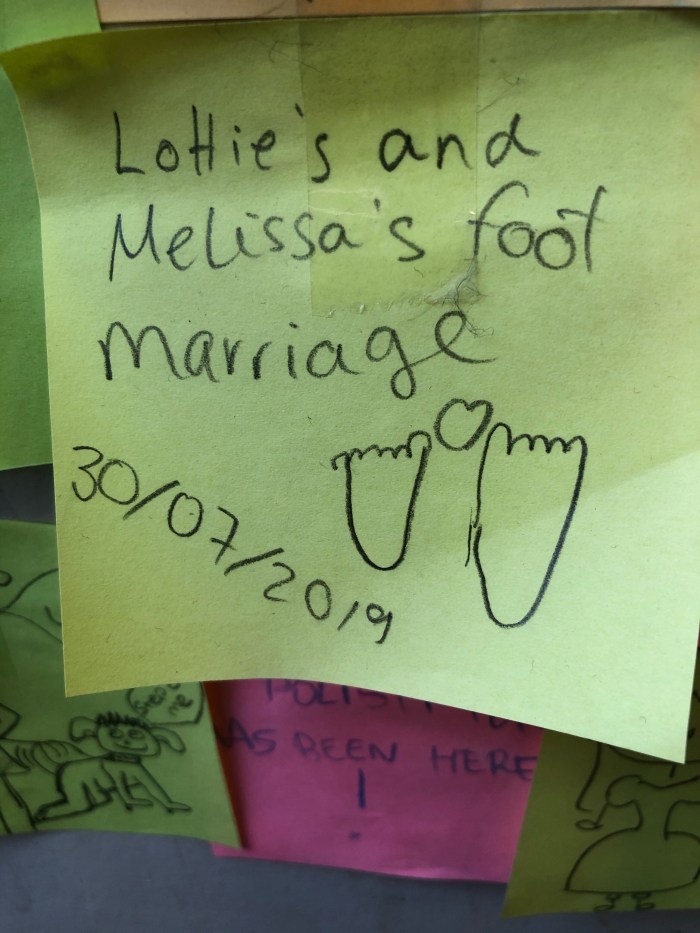 Lottie's and
Melissa's foot
marriage
30/07/2019
me
POLISH
HAS BEEN HERE
!